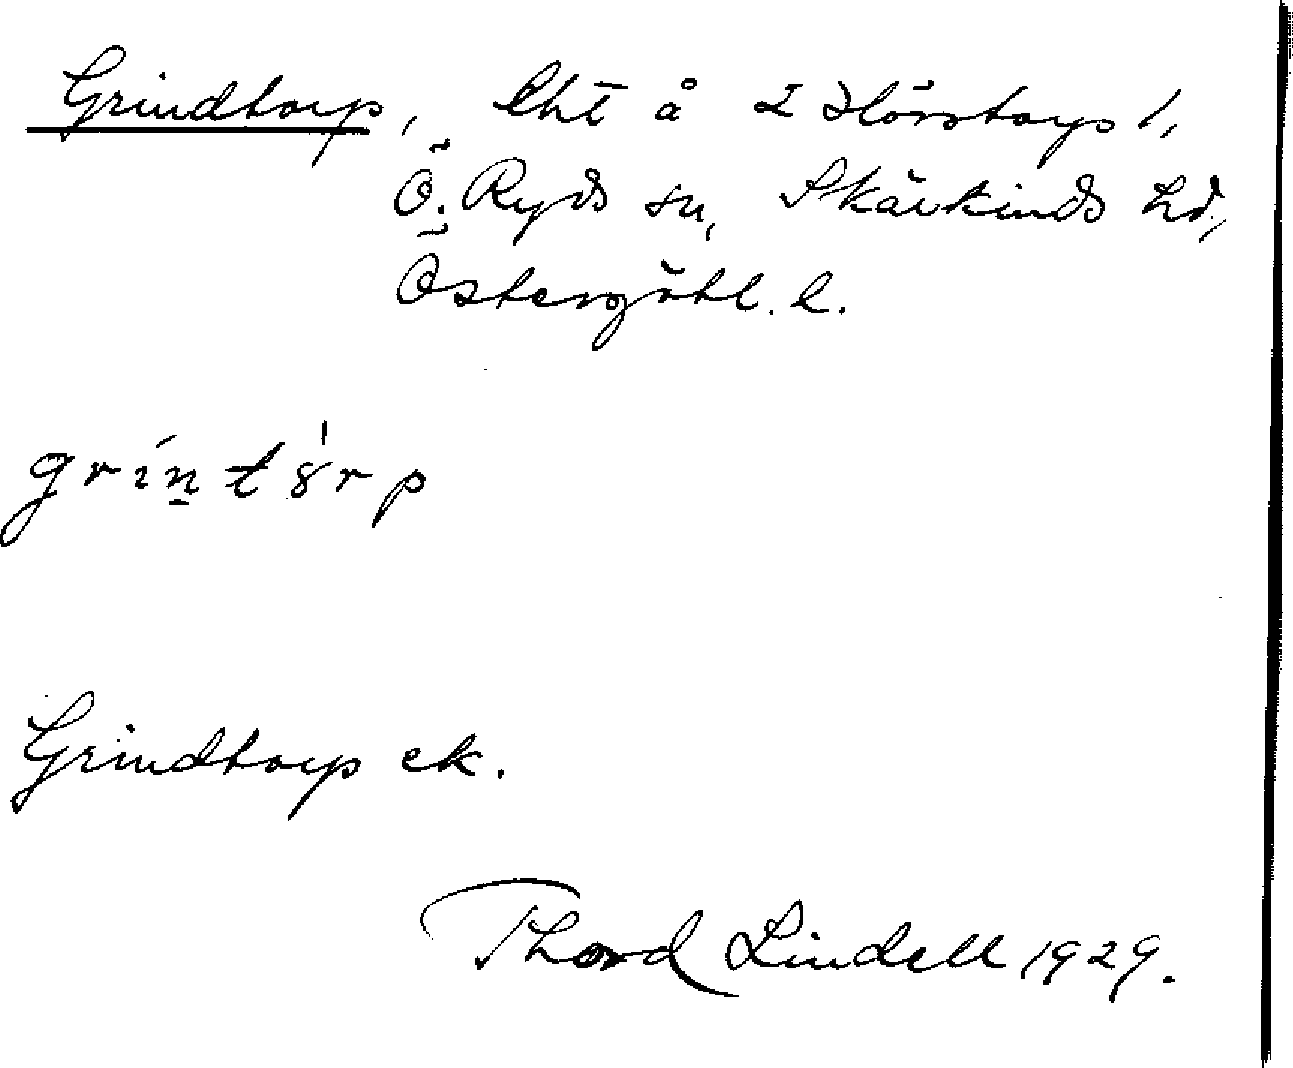 Grindtorp, lht å 2 Hörstorp 1,
Ö. Ryds sn, Skärkinds hd,
Östergötl. l.
grínt8̍rp
Grindtorp ek.
Thord Lindell 1929.